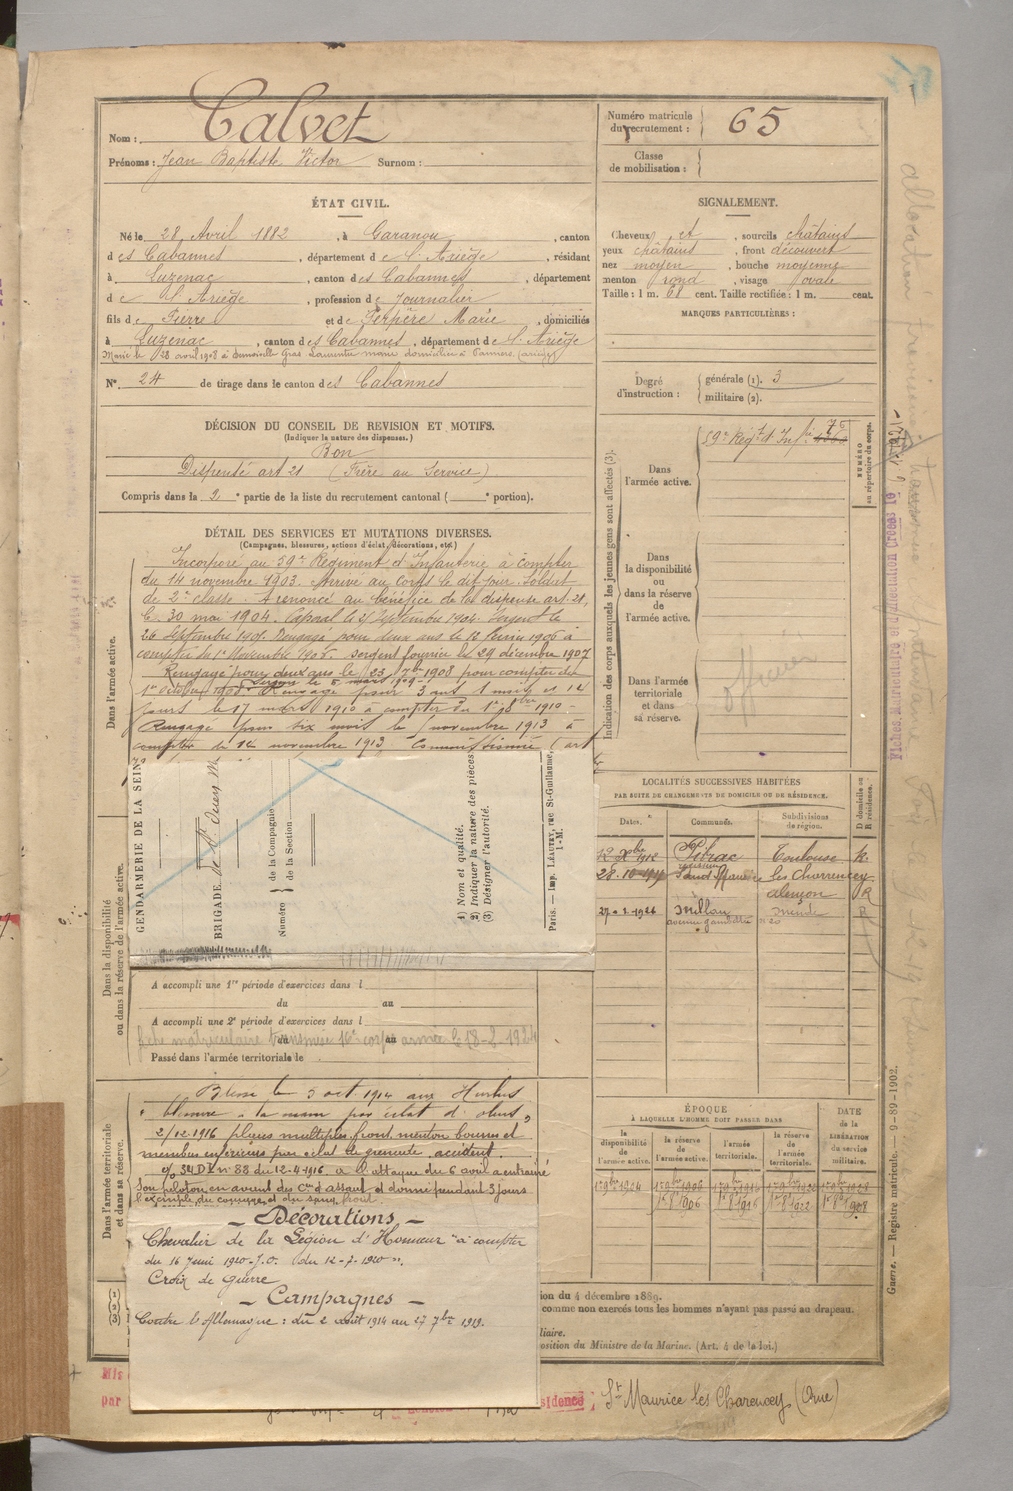 Nom : Calvet
Prénoms : Jean Baptiste Victor Surnom :
Numéro matricule
du recrutement : 65
Classe
de mobilisation :
ÉTAT CIVIL.
Né le 28 Avril 1882, à Garanou, canton
des Cabannes, département de l'Ariège, résidant
à Luzenac, canton des Cabannes, département
de l'Ariège, profession de Journalier
fils de Pierre et de Perpère Marie, domiciliés
à Luzenac, canton des Cabannes, département de l'Ariège
Marié le 28 avril 1908 à Demoiselle Gras Laurentie
N° 24 de tirage dans le canton des Cabannes
SIGNALEMENT.
Cheveux et, sourcils châtains
yeux châtains, front découvert
nez moyen, bouche moyenne
menton rond, visage ovale
Taille : 1 m. 61 cent. Taille rectifiée : 1 m. cent.
MARQUES PARTICULIÈRES :
Degré
d'instruction :
générale (1). 3
militaire (2).
DÉCISION DU CONSEIL DE REVISION ET MOTIFS.
(Indiquer la nature des dispenses.)
Bon
Dispensé art 21 (Frère au Service)
Compris dans la 2e partie de la liste du recrutement cantonal ( e portion).
DÉTAIL DES SERVICES ET MUTATIONS DIVERSES.
(Campagnes, blessures, actions d'éclat, décorations, etc.)
Dans l'armée active.
Incorporé au 59e Régiment d'Infanterie à compter
du 14 novembre 1903. Arrivé au corps le dit jour. Soldat
de 2e classe. A renoncé au bénéfice de la dispense art. 21,
le 30 mai 1904. Caporal le septembre 1904. Sergent le
26 Septembre 1905. Rengagé pour deux ans le 18 février 1906 à
compter du 1er Novembre 1906. Sergent fourrier le 29 décembre 1907
Rengagé pour deux ans le 23 7bre 1908 pour compter du
1er octobre 1908. Rengagé pour 3 ans 1 mois et 14
jours le 17 mars 1910 à compter du 1er 8bre 1910 -
Rengagé pour six mois le novembre 1913 à
compter du 14 novembre 1913. Commissionné (art
Indication des corps auxquels les jeunes gens sont affectés (3).
Dans
l'armée active.
59e Régt d'Infie
NUMÉRO
au répertoire du corps.
Dans
la disponibilité
ou
dans la réserve
de
l'armée active.
Dans l'armée
territoriale
et dans
sa réserve.
officier
GENDARMERIE DE LA SEIN
BRIGADE de St Ouen
Numéro
de la Compagnie
de la Section
1) Nom et qualité.
2) Indiquer la nature des pièces
(3) Désigner l'autorité.
Paris. — Imp. LÉAUTEY, rue St-Guillaume,
1-M.
LOCALITÉS SUCCESSIVES HABITÉES
PAR SUITE DE CHANGEMENTS DE DOMICILE OU DE RÉSIDENCE.
Dates. Communes. Subdivisions de région. D domicile ou R résidence.
12 Xbre 1912 Pibrac Toulouse R.
28-10- Saint Maurice les Charencey
alençon R
27-1-1926 Millau mende R
avenue gambetta n° 20
Dans la disponibilité
ou dans la réserve de l'armée active.
A accompli une 1re période d'exercices dans l
du au
A accompli une 2e période d'exercices dans l
du au
fiche matriculaire transmise 16e corps armée le 18-2-1924
Passé dans l'armée territoriale le
Dans l'armée territoriale
et dans sa réserve.
Blessé le 5 oct. 1914 aux Hurlus
"blessure à la main par éclat d'obus"
2/12-1916 plaies multiples front menton bourses et
membres inférieurs par éclat de grenade accident.
O/ 34 DI n° 88 du 12-4-1916. a l'attaque du 6 avril a entrainé
son peloton en avant des Cies d'assaut et donné pendant 3 jours
l'exemple du courage et du sang froid
- Décorations -
Chevalier de la Légion d'Honneur "à compter
du 16 Juin 1920 - J.O. du 12-7-1920".
Croix de guerre
- Campagnes -
Contre l'Allemagne : du 2 août 1914 au 27 7bre 1919.
ÉPOQUE
À LAQUELLE L'HOMME DOIT PASSER DANS
la disponibilité de l'armée active.
la réserve de l'armée active.
l'armée territoriale.
la réserve de l'armée territoriale.
DATE
de la
LIBÉRATION
du service
militaire.
1er 9bre 1904 1er 9bre 1906
1er 8bre 1906 1er 8bre 1916 1er 8bre 1922
(1)
(2)
(3)
ion du 4 décembre 1889.
comme non exercés tous les hommes n'ayant pas passé au drapeau.
liaire.
osition du Ministre de la Marine. (Art. 4 de la loi.)
Mis
par
sidence
St Maurice les Charencey (Orne)
Guerre. — Registre matricule. — 9-89-1902.